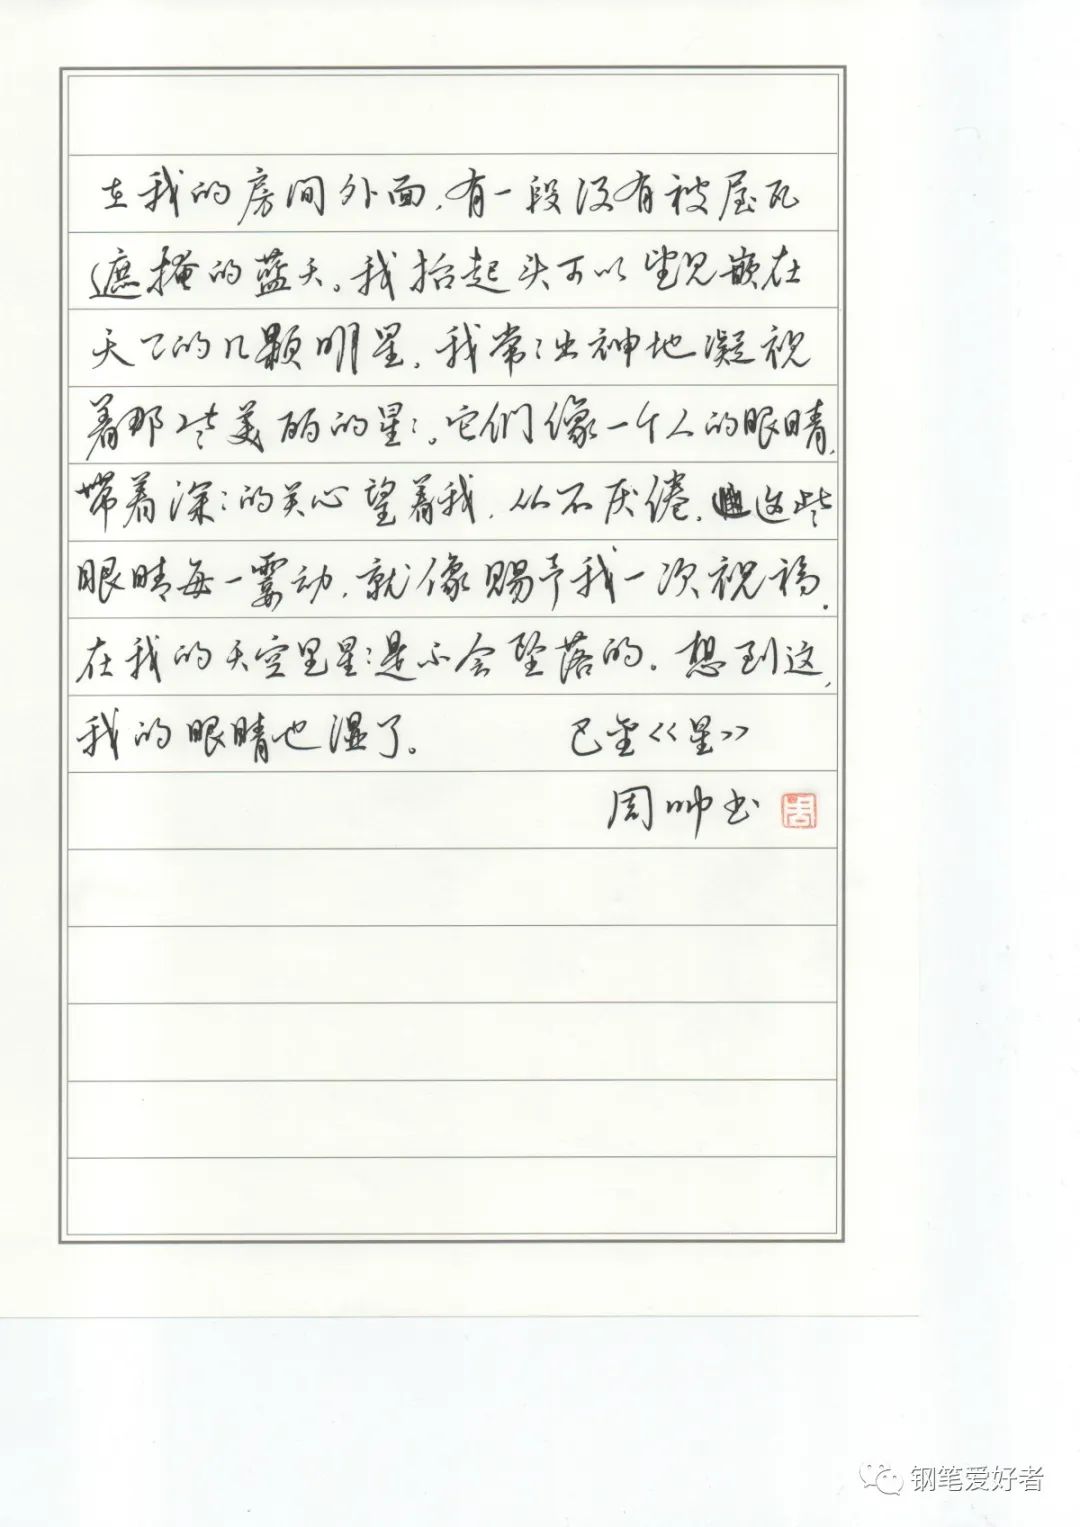 在我的房间外面,有一段没有被屋瓦
遮掩的蓝天。我抬起头可以望见嵌在
天上的几颗明星。我常:出神地凝视
着那些美丽的星:。它们像一个人的眼睛,
带着深:的关心望着我,从不厌倦。这些
眼睛每一霎动,就像赐予我一次祝福.
在我的天空里星:是不会坠落的。想到这,
我的眼睛也湿了。 巴金《星》
周帅书 周
钢笔爱好者